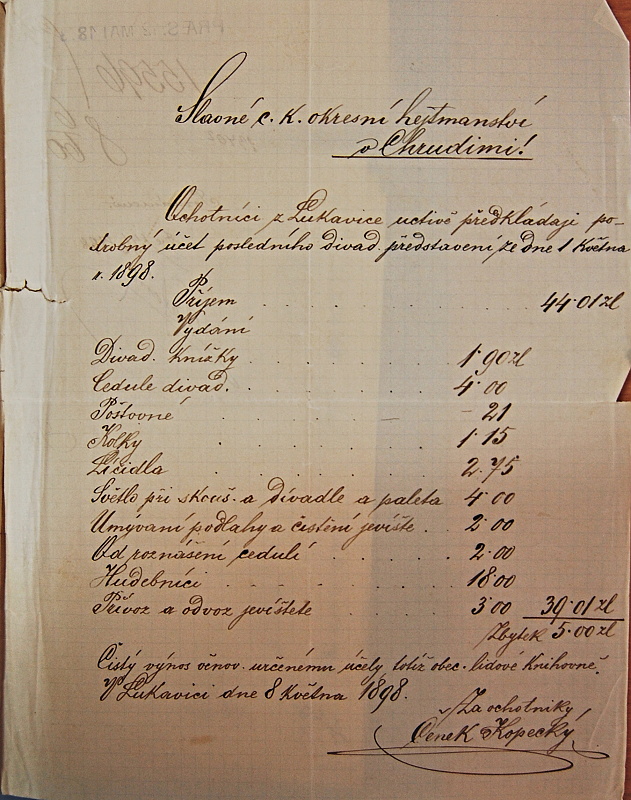 Slavné c. k. okresní hejtmanství
v Chrudimi!
Ochotníci z Lukavice uctivě předkládaji po-
drobný účet posledního divad. představení ze dne 1 Května
r. 1898.
Příjem . . . . . . . . 44·01 zl
Vydání
Divad. Knížky . . . . . 1·90 zl
Cedule divad. . . . . . 4·00
Poštovné . . . . . – 21
Kolky . . . . . 1·15
Líčidla . . . . . 2·75
Světlo při skouš. a divadle a paleta 4·00
Umývaní podlahy a čistění jeviště . . 2·00
Od roznášení cedulí . . . . 2·00
Hudebníci . . . . . 18·00
Přívoz a odvoz jevištěte . . . 3·00 39·01 zl
Zbytek 5·00 zl
Čistý výnos věnov. určenému účely totiž obec. lidové Knihovně.
V Lukavici dne 8 Května 1898.
Za ochotníky
Čeněk Kopecký